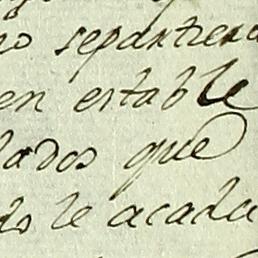 no repartiera
en estable
lados que
do le acada